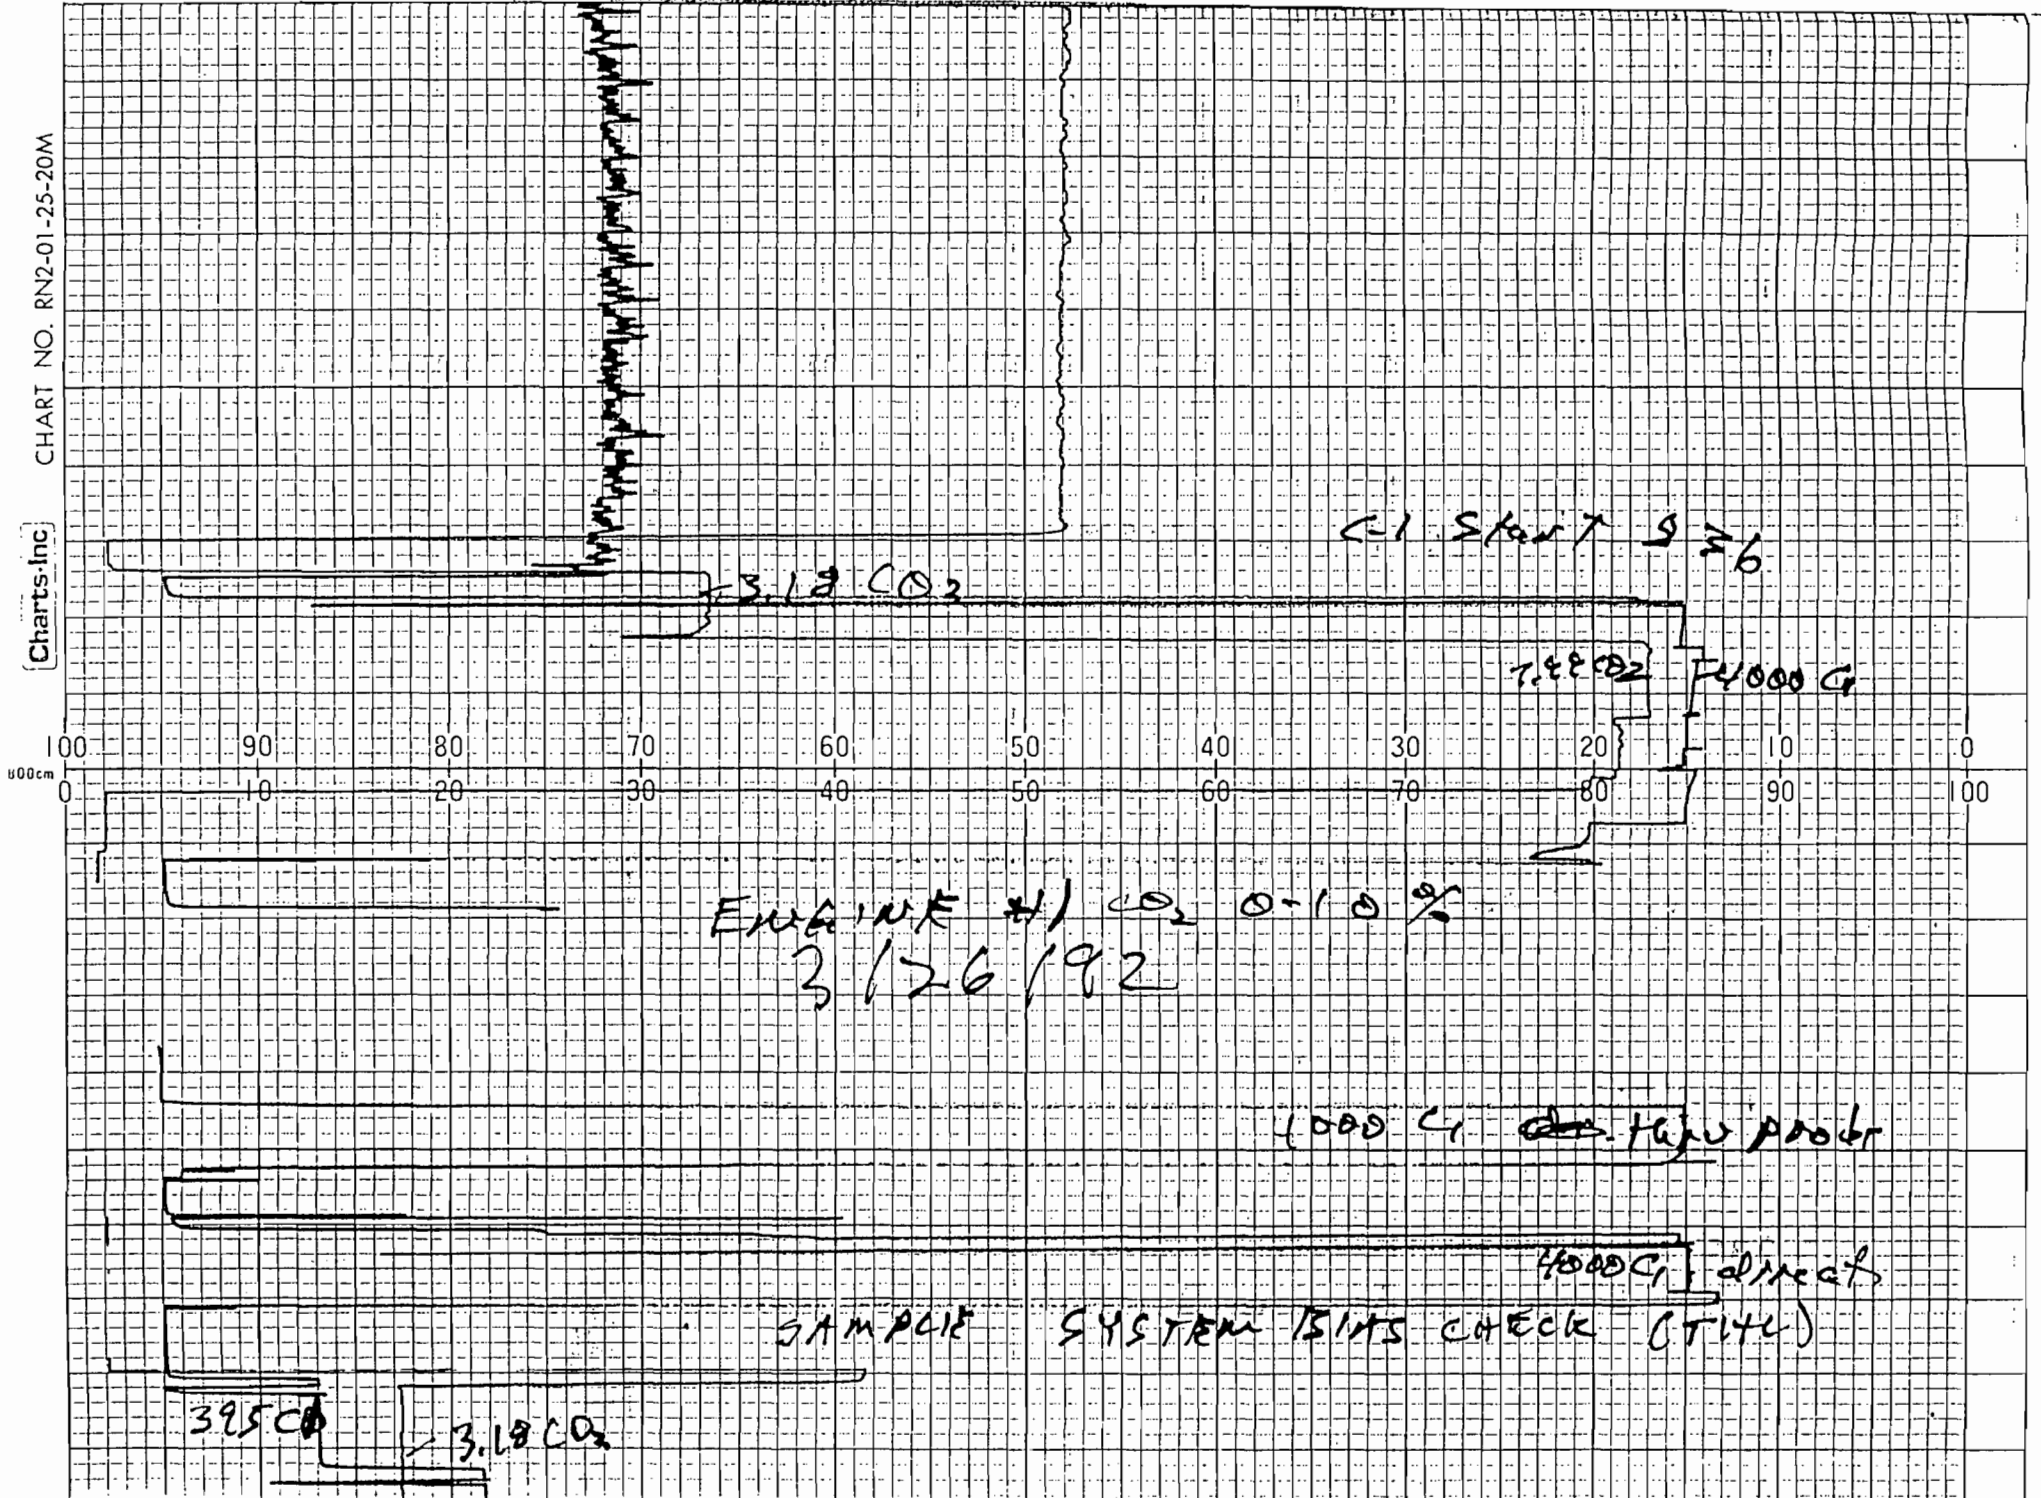 CHART NO. RN2-01-25-20M
Charts·Inc
C-1 Start
3.18 CO2
4000 C1
100 90 80 70 60 50 40 30 20 10 0
800cm
0 10 20 30 40 50 60 70 80 90 100
ENGINE #1 CO2 0-10 %
3/26/92
C1 thru probe
4000 C1 direct
SAMPLE SYSTEM BIAS CHECK (THC)
395 CO
3.18 CO2